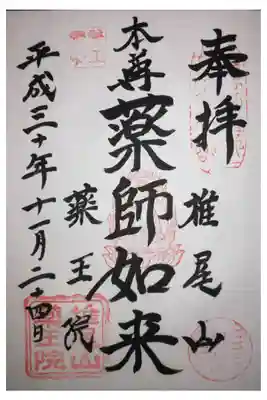 奉拝
椎尾山
本尊薬師如来
薬王院
平成三十年十一月二十四日